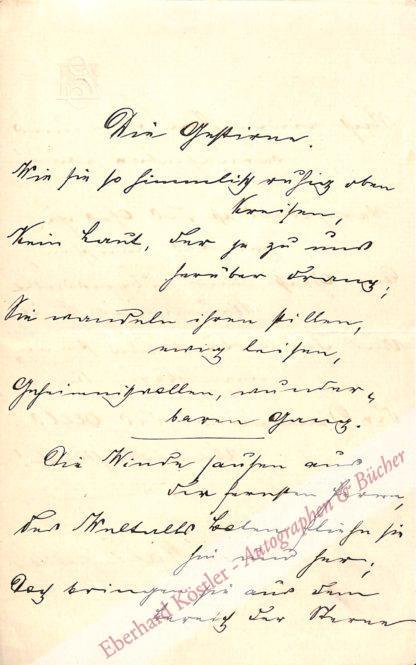 Die Gestirne.
Wie sie so himmlisch ruhig oben
kreisen,
Kein Laut, der je zu uns
herüber drang;
Sie wandeln ihren stillen,
ewig leisen,
Geheimnißvollen, wunder-
baren Gang.
Die Winde sausen aus
der fernsten Ferne,
Des Weltalls Boten fliehn sie
hin und her;
Doch bringen sie aus dem
Bereich der Sterne
Eberhard Köstler - Autographen & Bücher